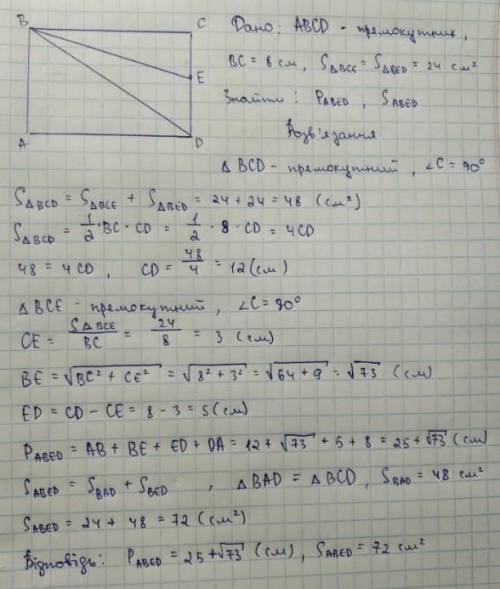 B
C
E
A
D
Дано: ABCD - прямокутник,
BC = 8 см, S△BCE = S△BED = 24 см²
Знайти: P_ABED, S_ABED
Розв'язання
△ BCD - прямокутний, ∠C = 90°
S△BCD = S△BCE + S△BED = 24 + 24 = 48 (см²)
S△BCD = 1/2 · BC · CD = 1/2 · 8 · CD = 4CD
48 = 4 CD, CD = 48/4 = 12 (см)
△ BCE - прямокутний, ∠C = 90°
CE = S△BCE/BC = 24/8 = 3 (см)
BE = √(BC² + CE²) = √(8² + 3²) = √(64 + 9) = √73 (см)
ED = CD - CE = 8 - 3 = 5 (см)
P_ABED = AB + BE + ED + DA = 12 + √73 + 5 + 8 = 25 + √73 (см)
S_ABED = S_BAD + S_BED, △BAD = △BCD, S_BAD = 48 см²
S_ABED = 24 + 48 = 72 (см²)
Відповідь: P_ABED = 25 + √73 (см), S_ABED = 72 см²